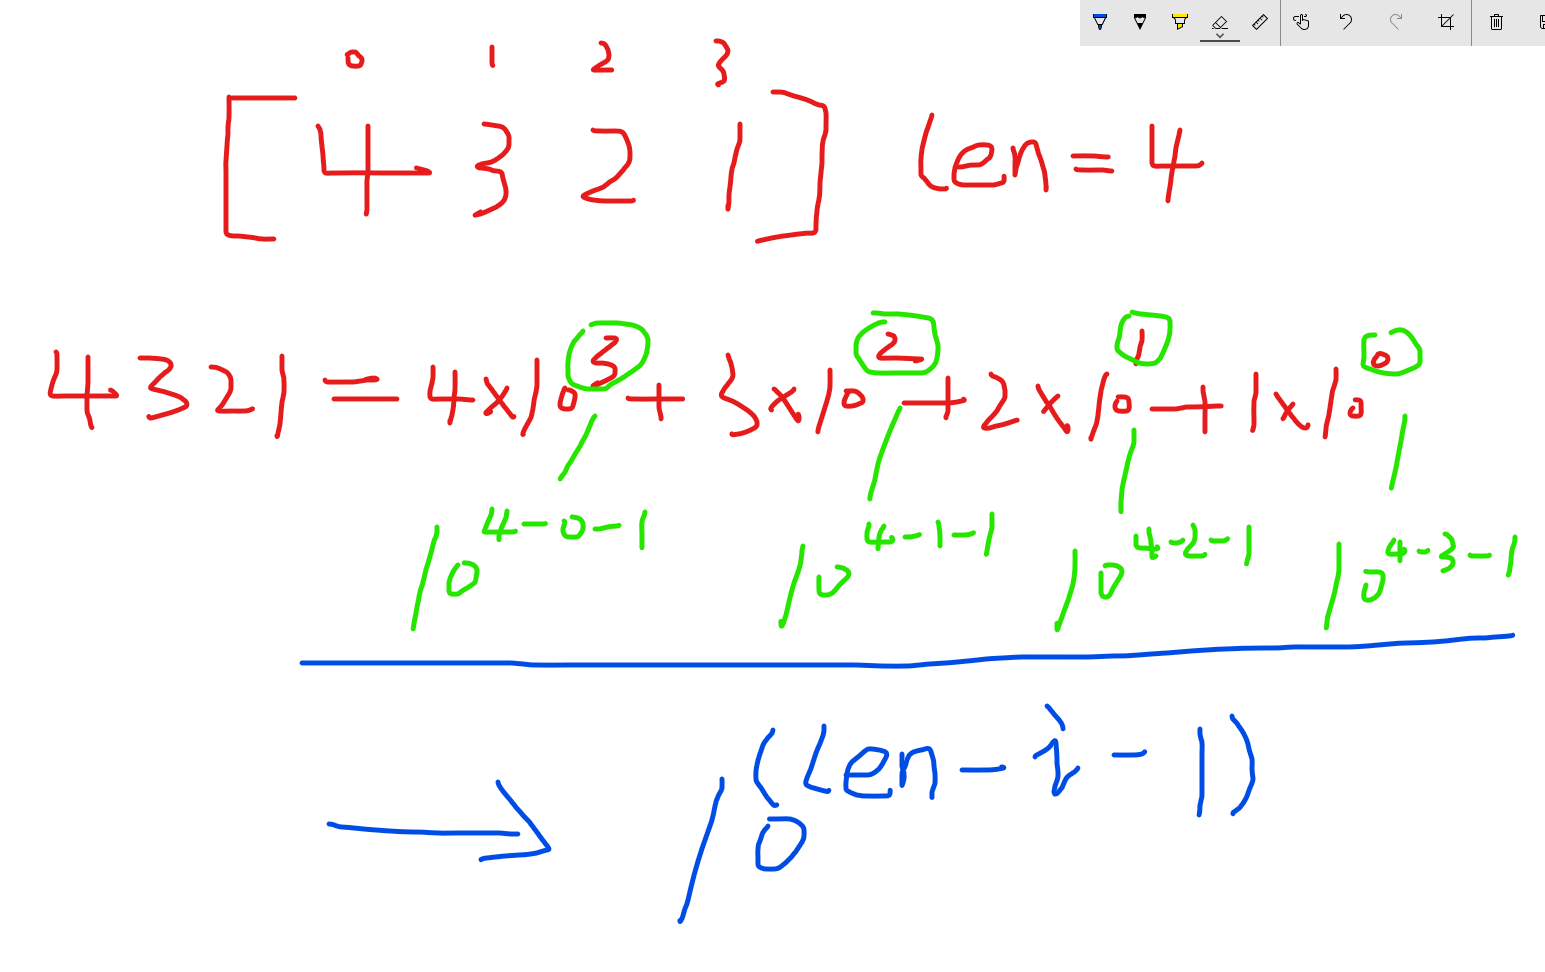 0 1 2 3
[4 3 2 1] len = 4
4321 = 4×10³ + 3×10² + 2×10¹ + 1×10⁰
10⁴⁻⁰⁻¹ 10⁴⁻¹⁻¹ 10⁴⁻²⁻¹ 10⁴⁻³⁻¹
→ 10^(len-i-1)